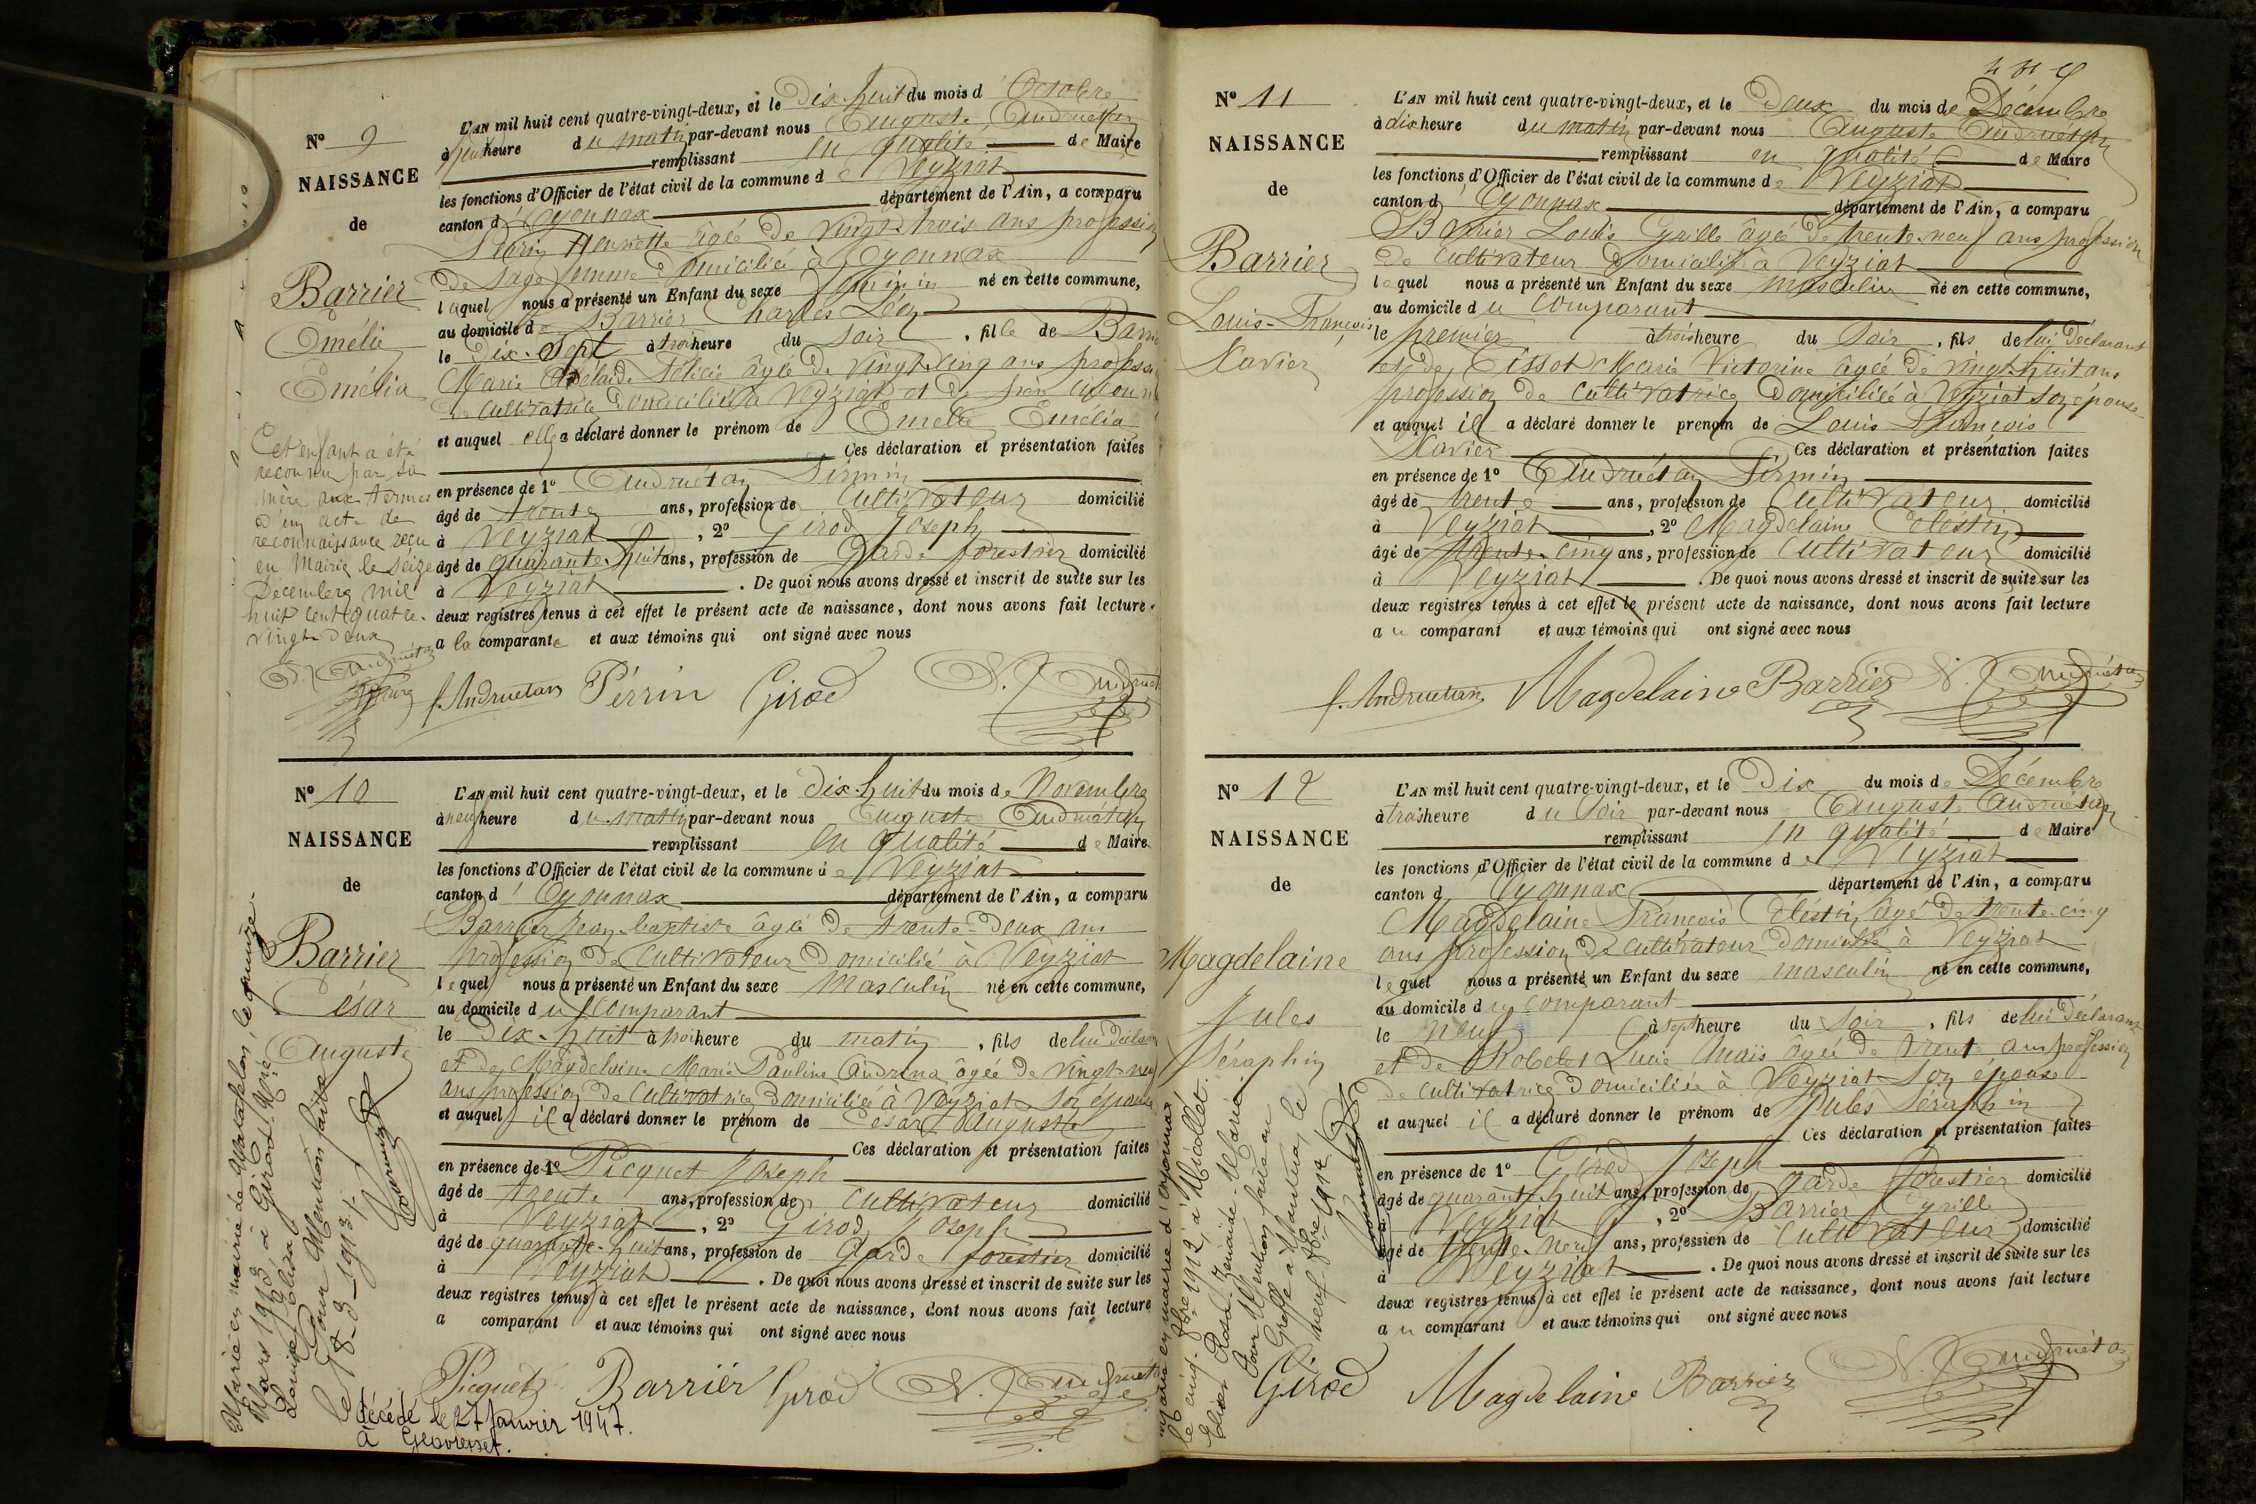 N° 9
NAISSANCE
de
Barrier
Emélie
Emélia
Cet enfant a été
reconnu par sa
mère aux termes
d'un acte de
reconnaissance reçu
en Mairie le seize
Décembre mil
huit cent quatre-
vingt-deux
L'AN mil huit cent quatre-vingt-deux, et le Dix-huit du mois d'Octobre
à heure du matin par-devant nous Auguste Andruétan
remplissant en qualité de Maire
les fonctions d'Officier de l'état civil de la commune de Veyziat
canton d'Oyonnax département de l'Ain, a comparu
Perrin Henriette âgée de vingt-trois ans profession
de sage femme domiciliée à Oyonnax
laquel nous a présenté un Enfant du sexe féminin né en cette commune,
au domicile de Barrier Charles Léon
le Dix-Sept à trois heure du soir, fille de Barrier
Marie Adélaïde Félicie âgée de vingt-cinq ans profession
de cultivatrice domiciliée à Veyziat et de père inconnu
et auquel elle a déclaré donner le prénom de Emélie Emélia
Ces déclaration et présentation faites
en présence de 1° Andruétan Firmin
âgé de trente ans, profession de cultivateur domicilié
à Veyziat, 2° Girod Joseph
âgé de quarante-huit ans, profession de Garde forestier domicilié
à Veyziat. De quoi nous avons dressé et inscrit de suite sur les
deux registres tenus à cet effet le présent acte de naissance, dont nous avons fait lecture
a la comparante et aux témoins qui ont signé avec nous
f. Andruetan Périin Girod A. Andruétan
N° 10
NAISSANCE
de
Barrier
César
Auguste
Marié en mairie de Matafelon, le quinze
Mars 1913, à Girod Marie
Louise Elisa
Pour Mention faite
le 18-3-1913
décédé le 27 Janvier 1947.
à Geovreisset.
L'AN mil huit cent quatre-vingt-deux, et le dix-huit du mois de Novembre
à neuf heure du matin par-devant nous Auguste Andruétan
remplissant en qualité de Maire
les fonctions d'Officier de l'état civil de la commune de Veyziat
canton d'Oyonnax département de l'Ain, a comparu
Barrier Jean-baptiste âgé de trente-deux ans
profession de cultivateur domicilié à Veyziat
lequel nous a présenté un Enfant du sexe Masculin né en cette commune,
au domicile du comparant
le Dix-huit à trois heure du matin, fils de lui Déclarant
et de Magdelaine Marie Pauline Andréna âgée de vingt-neuf
ans profession de cultivatrice domiciliée à Veyziat son épouse
et auquel il a déclaré donner le prénom de César Auguste
Ces déclaration et présentation faites
en présence de 1° Picquet Joseph
âgé de trente ans, profession de cultivateur domicilié
à Veyziat, 2° Girod Joseph
âgé de quarante-huit ans, profession de Garde forestier domicilié
à Veyziat. De quoi nous avons dressé et inscrit de suite sur les
deux registres tenus à cet effet le présent acte de naissance, dont nous avons fait lecture
a comparant et aux témoins qui ont signé avec nous
Picquet Barrier Girod A. Andruétan
N° 11
NAISSANCE
de
Barrier
Louis-François
Xavier
L'AN mil huit cent quatre-vingt-deux, et le Deux du mois de Décembre
à dix heure du matin par-devant nous Auguste Andruétan
remplissant en qualité de Maire
les fonctions d'Officier de l'état civil de la commune de Veyziat
canton d'Oyonnax département de l'Ain, a comparu
Barrier Louis Cyrille âgé de trente-neuf ans profession
de cultivateur domicilié à Veyziat
lequel nous a présenté un Enfant du sexe masculin né en cette commune,
au domicile du comparant
le premier à trois heure du soir, fils de lui Déclarant
et de Tissot Marie Victorine âgée de vingt-huit ans
profession de cultivatrice domiciliée à Veyziat son épouse
et auquel il a déclaré donner le prénom de Louis François
Xavier Ces déclaration et présentation faites
en présence de 1° Andruétan Firmin
âgé de trente ans, profession de cultivateur domicilié
à Veyziat, 2° Magdelaine Célestin
âgé de trente-cinq ans, profession de cultivateur domicilié
à Veyziat. De quoi nous avons dressé et inscrit de suite sur les
deux registres tenus à cet effet le présent acte de naissance, dont nous avons fait lecture
au comparant et aux témoins qui ont signé avec nous
f. Andruetan Magdelaine Barrier A. Andruétan
N° 12
NAISSANCE
de
Magdelaine
Jules
Séraphin
Marié en mairie d'Oyonnax
le cinq 1912, à Micollet
Rosa Zénaïde Marie
Pour Mention faite au
Greffe à Nantua, le
neuf 1912
L'AN mil huit cent quatre-vingt-deux, et le Dix du mois de Décembre
à trois heure du soir par-devant nous Auguste Andruétan
remplissant en qualité de Maire
les fonctions d'Officier de l'état civil de la commune de Veyziat
canton d'Oyonnax département de l'Ain, a comparu
Magdelaine François Célestin âgé de trente-cinq
ans profession de cultivateur domicilié à Veyziat
lequel nous a présenté un Enfant du sexe masculin né en cette commune,
au domicile du comparant
le neuf à sept heure du soir, fils de lui Déclarant
et de Robelet Lucie Maïs âgée de trente ans profession
de cultivatrice domiciliée à Veyziat son épouse
et auquel il a déclaré donner le prénom de Jules Séraphin
Ces déclaration et présentation faites
en présence de 1° Girod Joseph
âgé de quarante-huit ans, profession de garde forestier domicilié
à Veyziat, 2° Barrier Cyrille
âgé de trente-neuf ans, profession de cultivateur domicilié
à Veyziat. De quoi nous avons dressé et inscrit de suite sur les
deux registres tenus à cet effet le présent acte de naissance, dont nous avons fait lecture
au comparant et aux témoins qui ont signé avec nous
Girod Magdelaine Barrier A. Andruétan